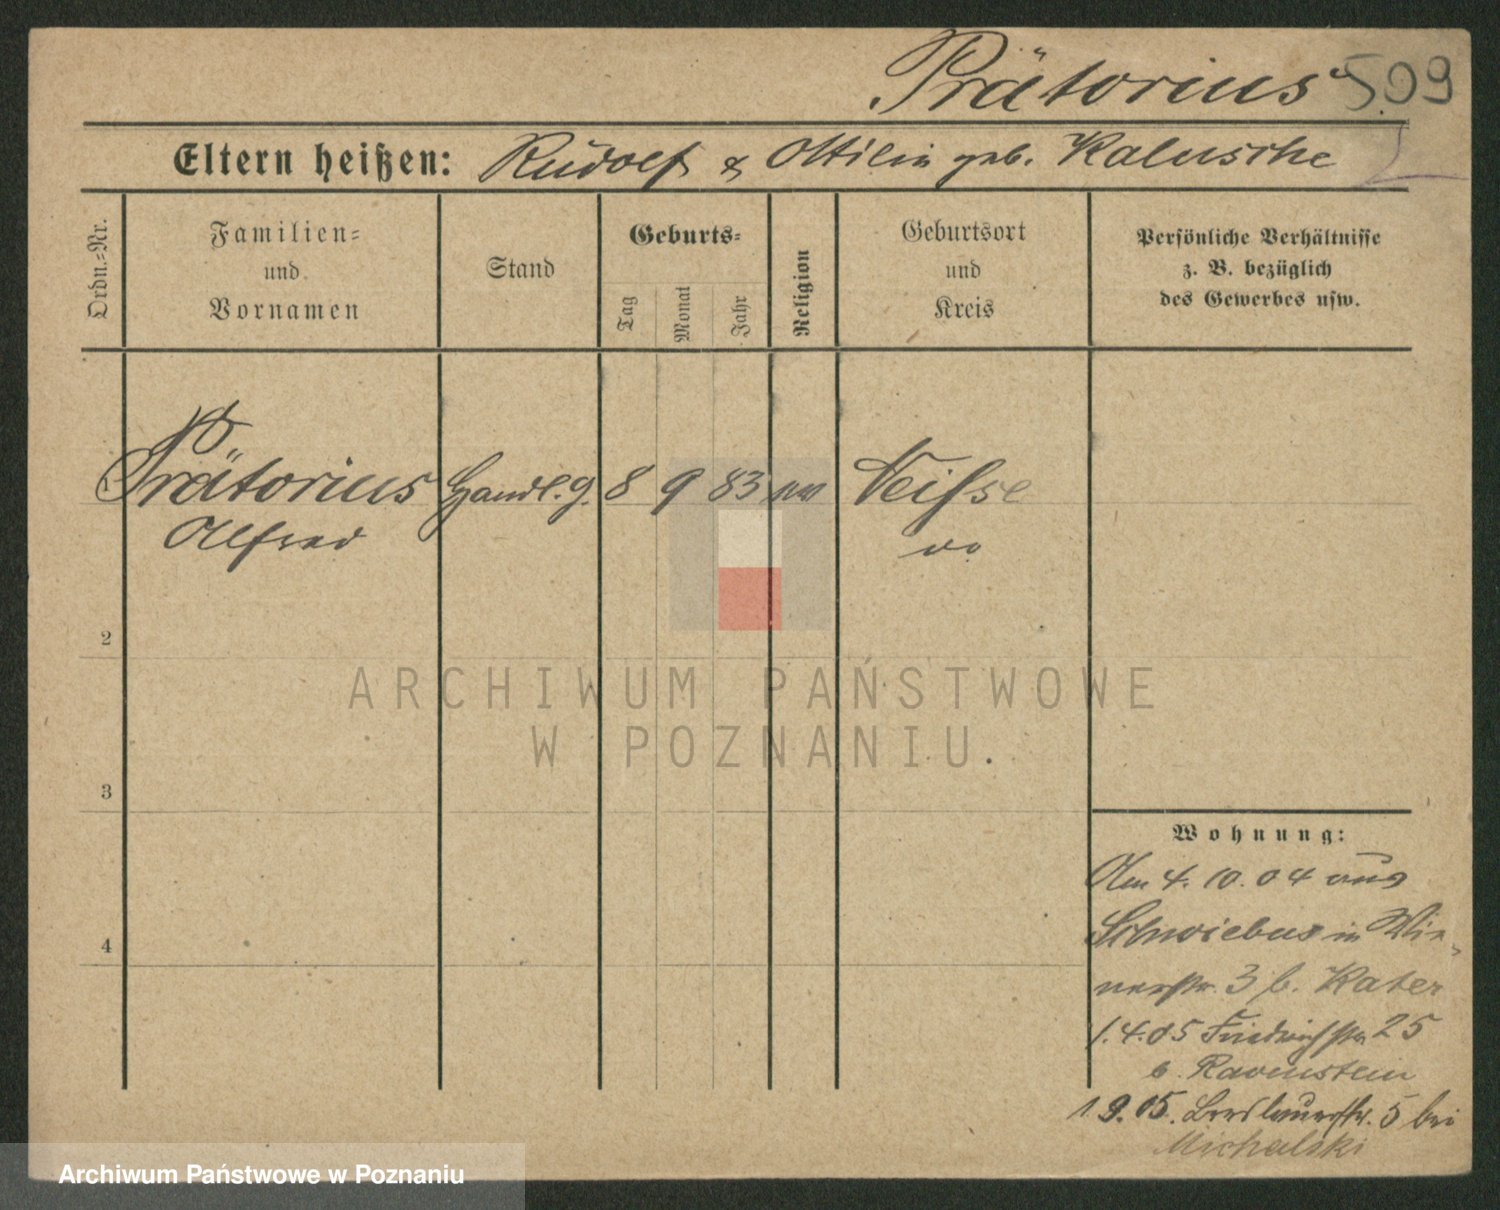 Prätorius
509
Eltern heißen: Rudolf & Ottilie geb. Kalusche
Ordn.=Nr.
Familien=
und
Vornamen
Stand
Geburts=
Tag
Monat
Jahr
Religion
Geburtsort
und
Kreis
Persönliche Verhältnisse
z. B. bezüglich
des Gewerbes usw.
Prätorius Handl. g. 8 9 83 Neisse
Alfred do
2
3
4
ARCHIWUM PAŃSTWOWE
W POZNANIU.
Wohnung:
Am 4. 10. 04 aus
Schwiebus in Wie-
nerstr. 3 b. Kater
1. 4. 05 Friedrichstr 25
b. Ravenstein
1 9. 05. Breslauerstr. 5 bei
Michalski
Archiwum Państwowe w Poznaniu